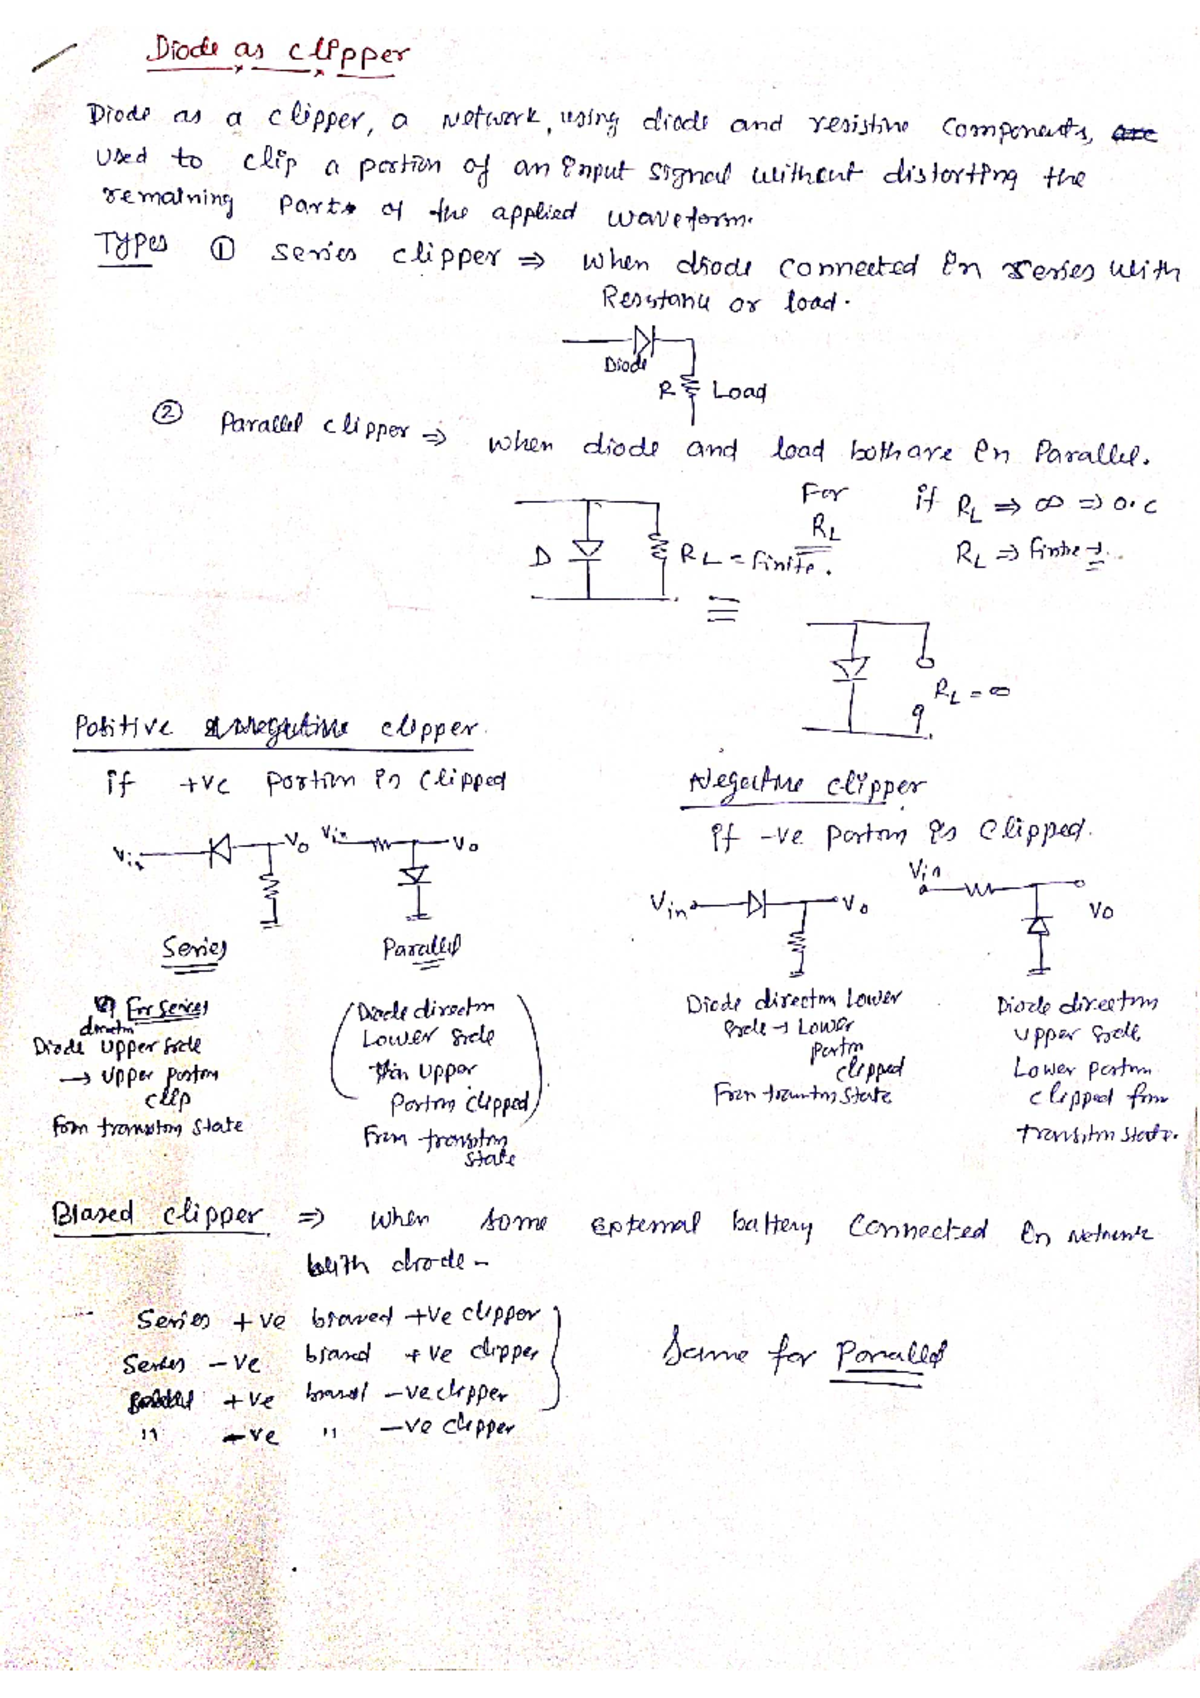 Diode as clipper
Diode as a clipper, a network, using diode and resistive components, are
used to clip a portion of an input signal without distorting the
remaining parts of the applied waveform.
Types ① Series clipper ⇒ when diode connected in series with
Resistance or load.
Diode
R Load
② Parallel clipper ⇒ when diode and load both are in Parallel.
For if RL ⇒ ∞ ⇒ o.c
RL
D RL = finite. RL ⇒ finite
≡
RL = ∞
Positive negative clipper.
if +ve portion is clipped
Negative clipper
if -ve portion is clipped.
Vin Vo Vin Vo
Vin Vo Vin Vo
Series Parallel
For series
direction
Diode upper side
→ upper portion
clip
From transition state
(Diode direction
Lower side
then upper
Portion clipped)
From transition
state
Diode direction Lower
side → Lower
portion
clipped
From transition state
Diode direction
upper side,
Lower portion
clipped from
transition state.
Biased clipper ⇒ when some external battery connected in network
with diode -
Series +ve biased +ve clipper
Series -ve biased +ve clipper
+ve biased -ve clipper
" -ve " -ve clipper
Same for Parallel